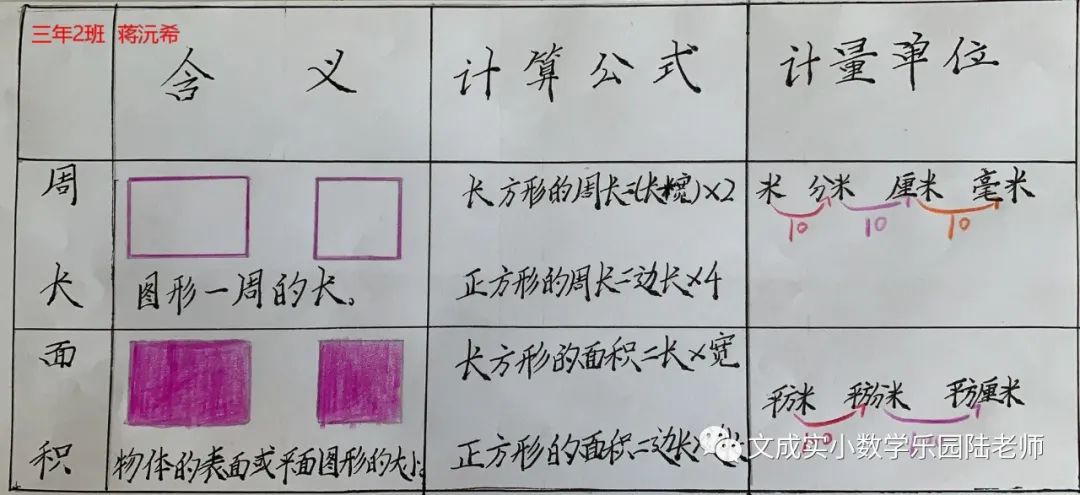 三年2班 蒋沅希
含义 计算公式 计量单位
周长
图形一周的长。
长方形的周长=(长+宽)×2
正方形的周长=边长×4
米 分米 厘米 毫米
10 10 10
面积
物体的表面或平面图形的大小。
长方形的面积=长×宽
正方形的面积=边长×
平方米 平方分米 平方厘米
文成实小数学乐园陆老师